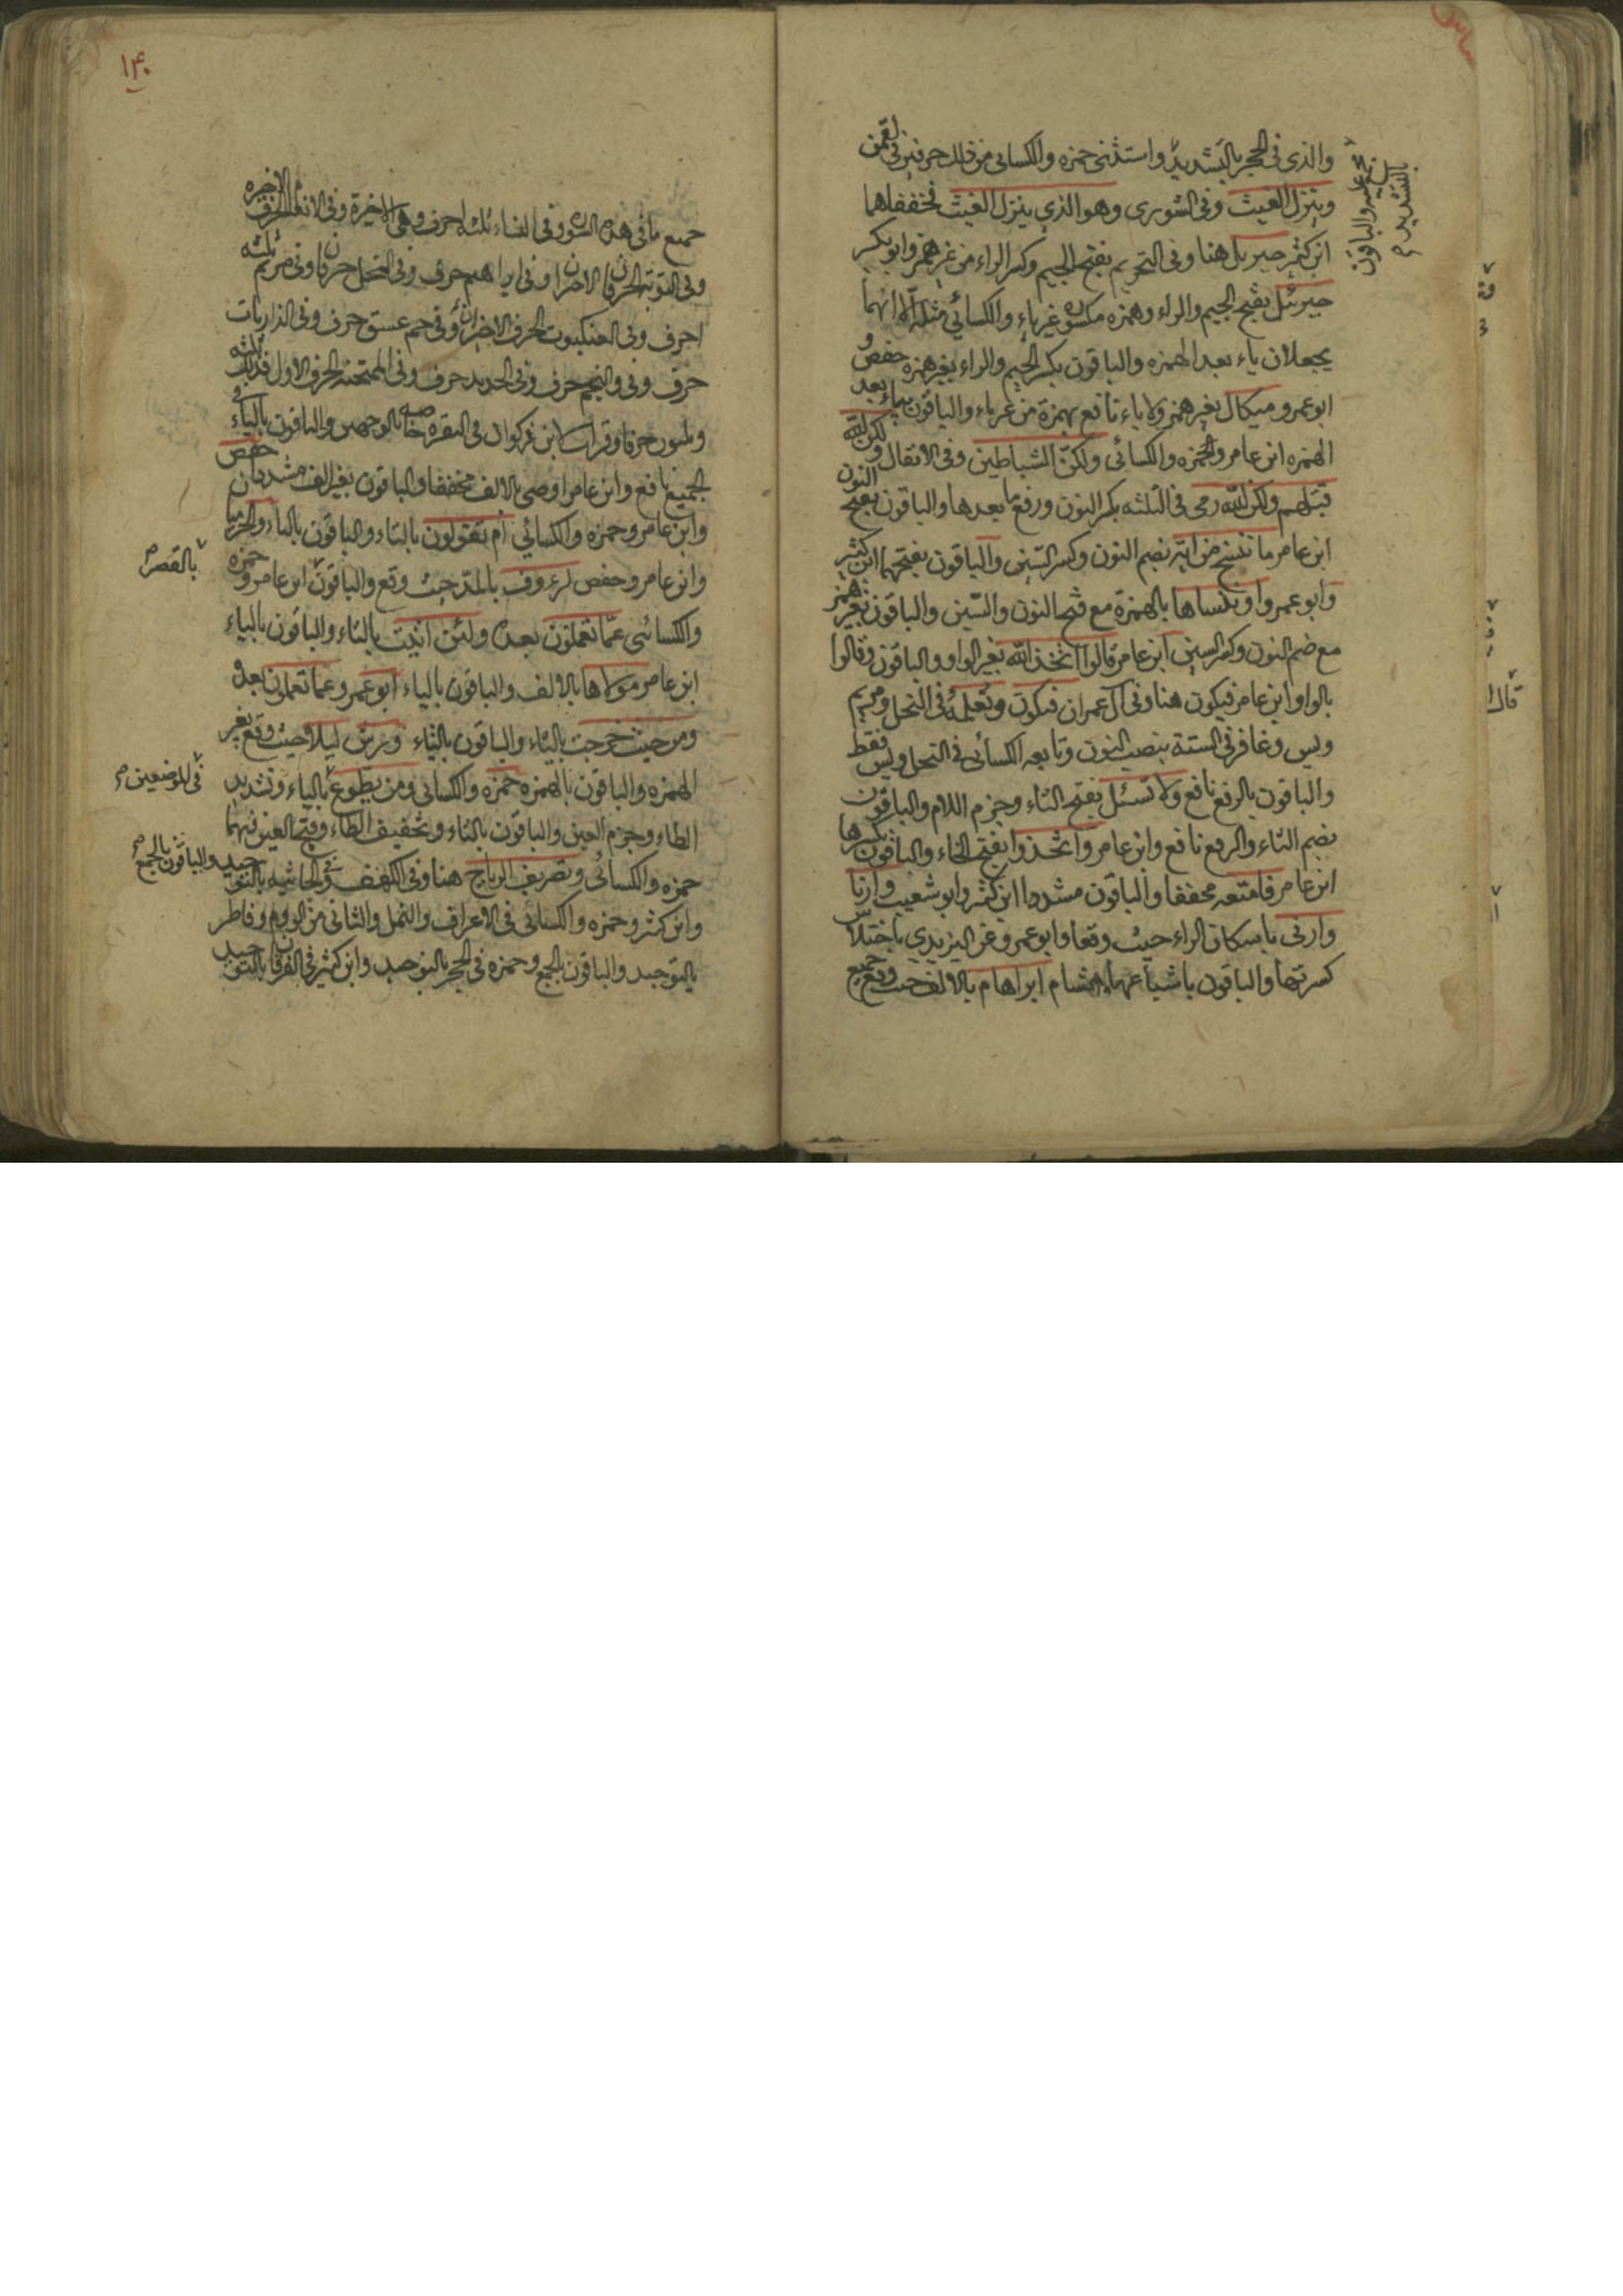 والذى فى الحجر بالتشديد واستثنى حمزه والكسائى من ذلك حرفين فى لقمن
وينزل الغيث وفى الشورى وهو الذى ينزل الغيث فخففاهما
ابن كثير جبريل هنا وفى التحريم بفتح الجيم وكسر الراء من غير همز وابو بكر
جبرئل بفتح الجيم والراء وهمزه مكسورة غير ياء والكسائي مثله الا انهما
يجعلان ياء بعد الهمزه والباقون بكسر الجيم والراء بغير همزه حفص و
ابو عمرو ميكال بغير همز ولا ياء نافع بهمزة من غير ياء والباقون بياء بعد
الهمزه ابن عامر وحمزه والكسائى ولكن الشياطين وفى الانفال ولكن الله
قتلهم ولكن الله رمى فى الثلثه بكسر النون ورفع ما بعدها والباقون بفتح النون
ابن عامر ما ننسخ من اية بضم النون وكسر السين والباقون بفتحهما ابن كثير
وابو عمرو او ننساها بالهمزة مع فتح النون والسين والباقون بغير همز
مع ضم النون وكسر السين ابن عامر قالوا اتخذ الله بغير الواو والباقون وقالوا
بالواو ابن عامر فيكون هنا وفى آل عمران فيكون ونعلمه فى النحل ومريم
ويس وغافر فى الستة بنصب النون وتابعه الكسائى فى النحل ويس فقط
والباقون بالرفع نافع ولا تسئل بفتح التاء وجزم اللام والباقون
بضم التاء والرفع نافع وابن عامر واتخذوا بفتح الخاء والباقون بكسرها
ابن عامر فامتعه مخففا والباقون مشددا ابن كثير وابو شعيب وارنا
وارنى باسكان الراء حيث وقعا وابو عمرو عن اليزيدي باختلاس
كسرتها والباقون باشباعها هشام ابراهام بالالف حيث وقع جميع
عليه والباقون
بالتشديد
قال
١۴٠
جميع ما فى هذه السورة وفى النساء ثلثه احرف وهى الاخيرة وفى الانعام الحرف الاخيره
وفى التوبة الحرفان الاخران وفى ابراهيم حرف وفى النحل حرفان وفى مريم ثلثه
احرف وفى العنكبوت الحرف الاخير وفى حم عسق حرف وفى الذاريات
حرف وفى والنجم حرف وفى الحديد حرف وفى الممتحنه الحرف الاول فذلك ثلثه
وثلثون حرفا وقرات لابن ذكوان فى البقره خاصه بالوجهين والباقون بالياء فى
الجميع نافع وابن عامر اوصى بالالف مخففا والباقون بغير الف مشددا حفص
وابن عامر وحمزه والكسائي ام تقولون بالتاء والباقون بالياء والحرميا
وابن عامر وحفص لرءوف بالمد حيث وقع والباقون ابن عامر وحمزه
بالقصر
والكسائى عما تعملون بعده ولئن اتيت بالتاء والباقون بالياء
ابن عامر مولاها بالالف والباقون بالياء ابو عمرو عما تعملون بعده
ومن حيث خرجت بالياء والباقون بالتاء ورش ليلا حيث وقع بغير
الهمزه والباقون بالهمزه حمزه والكسائى ومن يطوع بالياء وتشديد
فى الموضعين
الطاء وجزم العين والباقون بالتاء وتخفيف الطاء وفتح العين فيهما
حمزه والكسائى وتصريف الرياح هنا وفى الكهف وفى الجاثيه بالتوحيد والباقون بالجمع
وابن كثير وحمزه والكسائى فى الاعراف والنمل والثانى من الروم وفاطر
بالتوحيد والباقون بالجمع وحمزه فى الحجر بالتوحيد وابن كثير فى الفرقان بالتوحيد